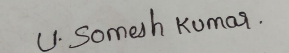 U. Somesh Kumar.